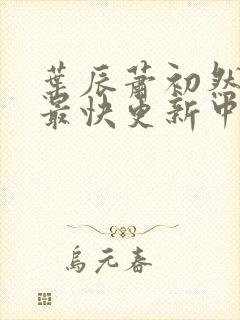 葉辰蕭初然
最快更新中
烏元春